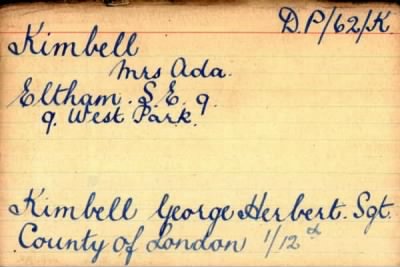 D.P/62/K
Kimbell
Mrs Ada.
Eltham. S.E. 9.
9. West Park.
Kimbell George Herbert. Sgt.
County of London 1/12